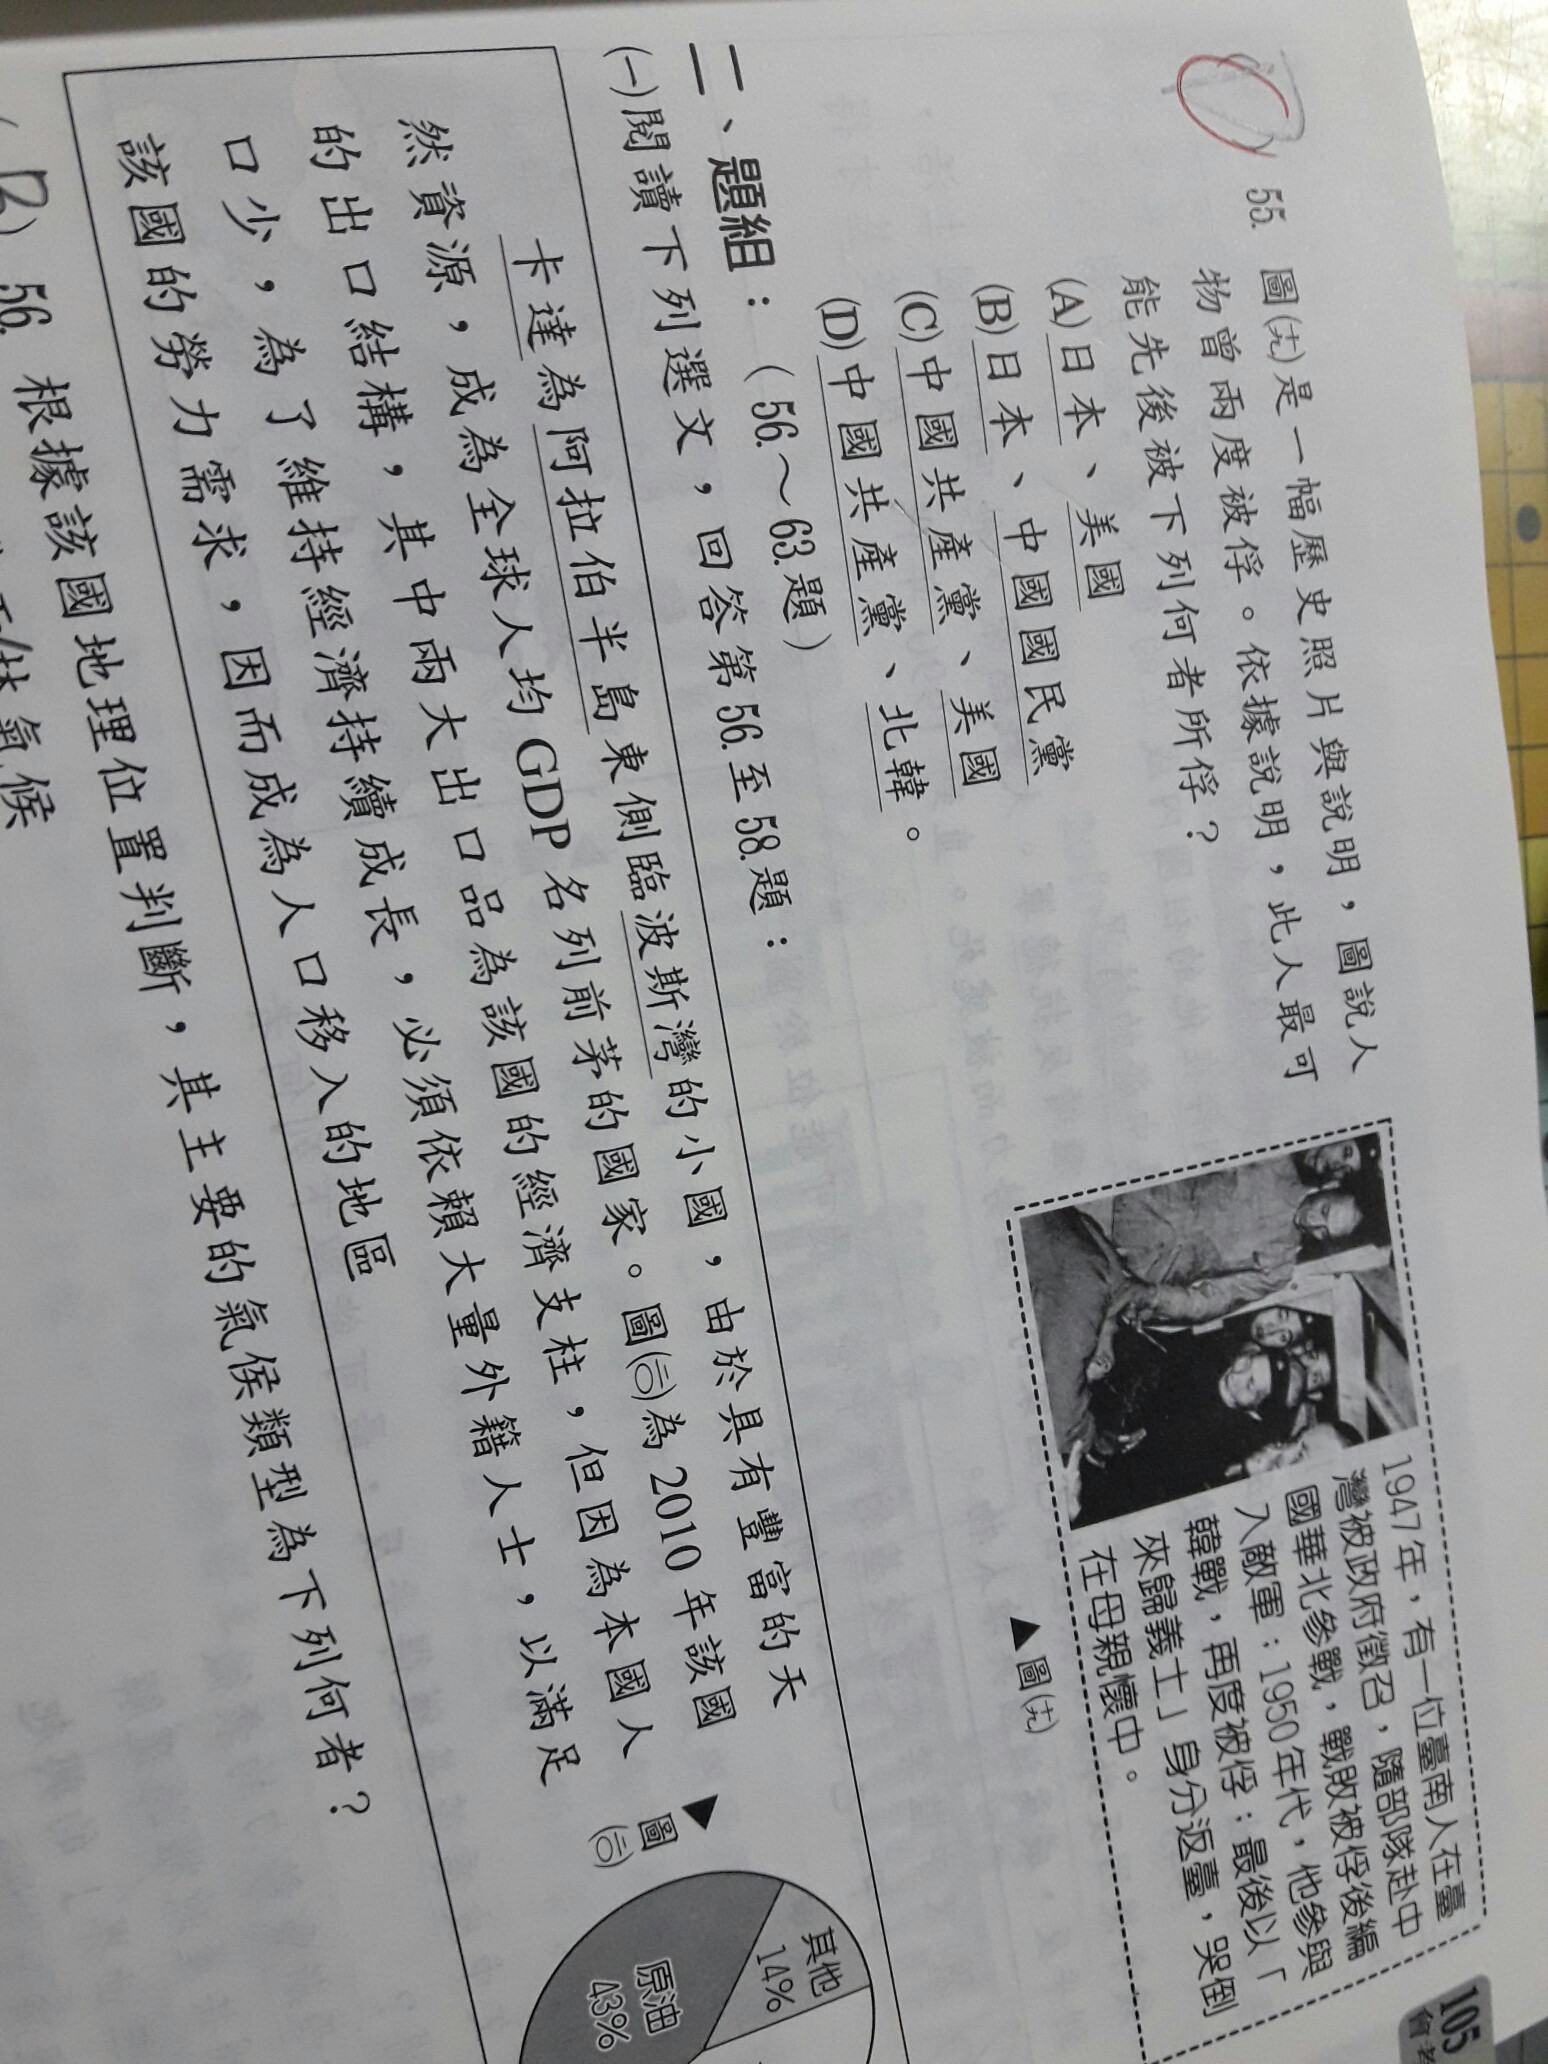 55. 圖(九)是一幅歷史照片與說明，圖說人
物曾兩度被俘。依據說明，此人最可
能先後被下列何者所俘？
(A)日本、美國
(B)日本、中國國民黨
(C)中國共產黨、美國
(D)中國共產黨、北韓。
1947年，有一位臺南人在臺
灣被政府徵召，隨部隊赴中
國華北參戰，戰敗被俘後編
入敵軍；1950年代，他參與
韓戰，再度被俘；最後以「
來歸義士」身分返臺，哭倒
在母親懷中。
▲圖(九)
二、題組：（56.～63.題）
(一)閱讀下列選文，回答第56.至58.題：
卡達為阿拉伯半島東側臨波斯灣的小國，由於具有豐富的天
然資源，成為全球人均GDP名列前茅的國家。圖(二)為2010年該國
的出口結構，其中兩大出口品為該國的經濟支柱，但因為本國人
口少，為了維持經濟持續成長，必須依賴大量外籍人士，以滿足
該國的勞力需求，因而成為人口移入的地區
▲圖
其他
14%
原油
43%
(B) 56. 根據該國地理位置判斷，其主要的氣侯類型為下列何者？
林氣候
105